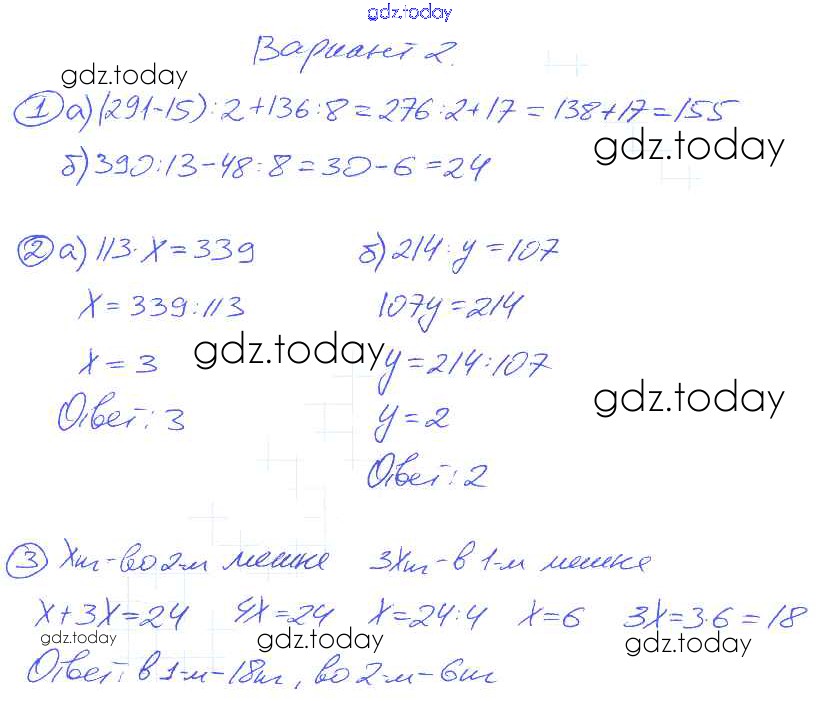 gdz.today
Вариант 2.
gdz.today
① а) (291-15):2+136:8=276:2+17=138+17=155
gdz.today
б) 390:13-48:8=30-6=24
② а) 113·x=339 б) 214:y=107
x=339:113 107y=214
gdz.today
x=3 y=214:107
gdz.today
Ответ: 3 y=2
Ответ: 2
③ xт-во 2-м мешке 3xт-в 1-м мешке
x+3x=24 4x=24 x=24:4 x=6 3x=3·6=18
gdz.today gdz.today gdz.today
Ответ: в 1-м-18т, во 2-м-6т